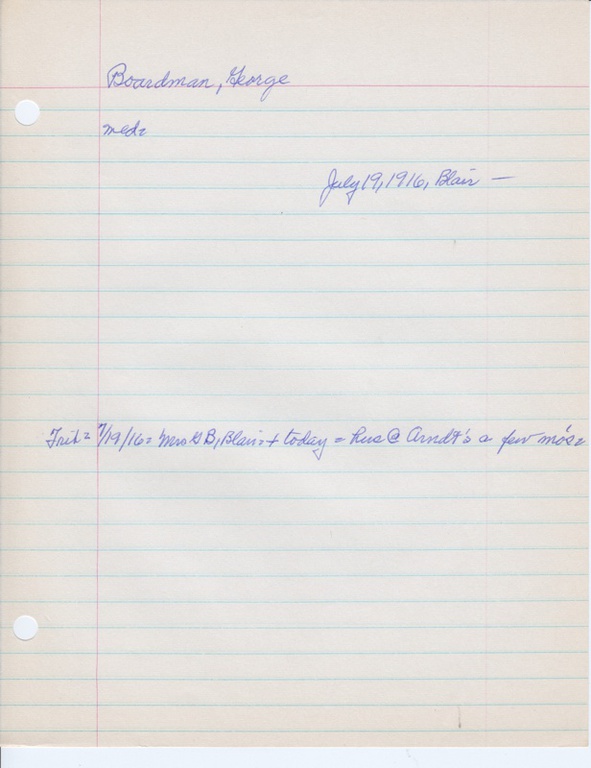 Boardman, George
med=
July 19, 1916, Blair —
Trib= 7/19/16= Mrs G B, Blair= + today = hus @ Arndt's a few mo's=